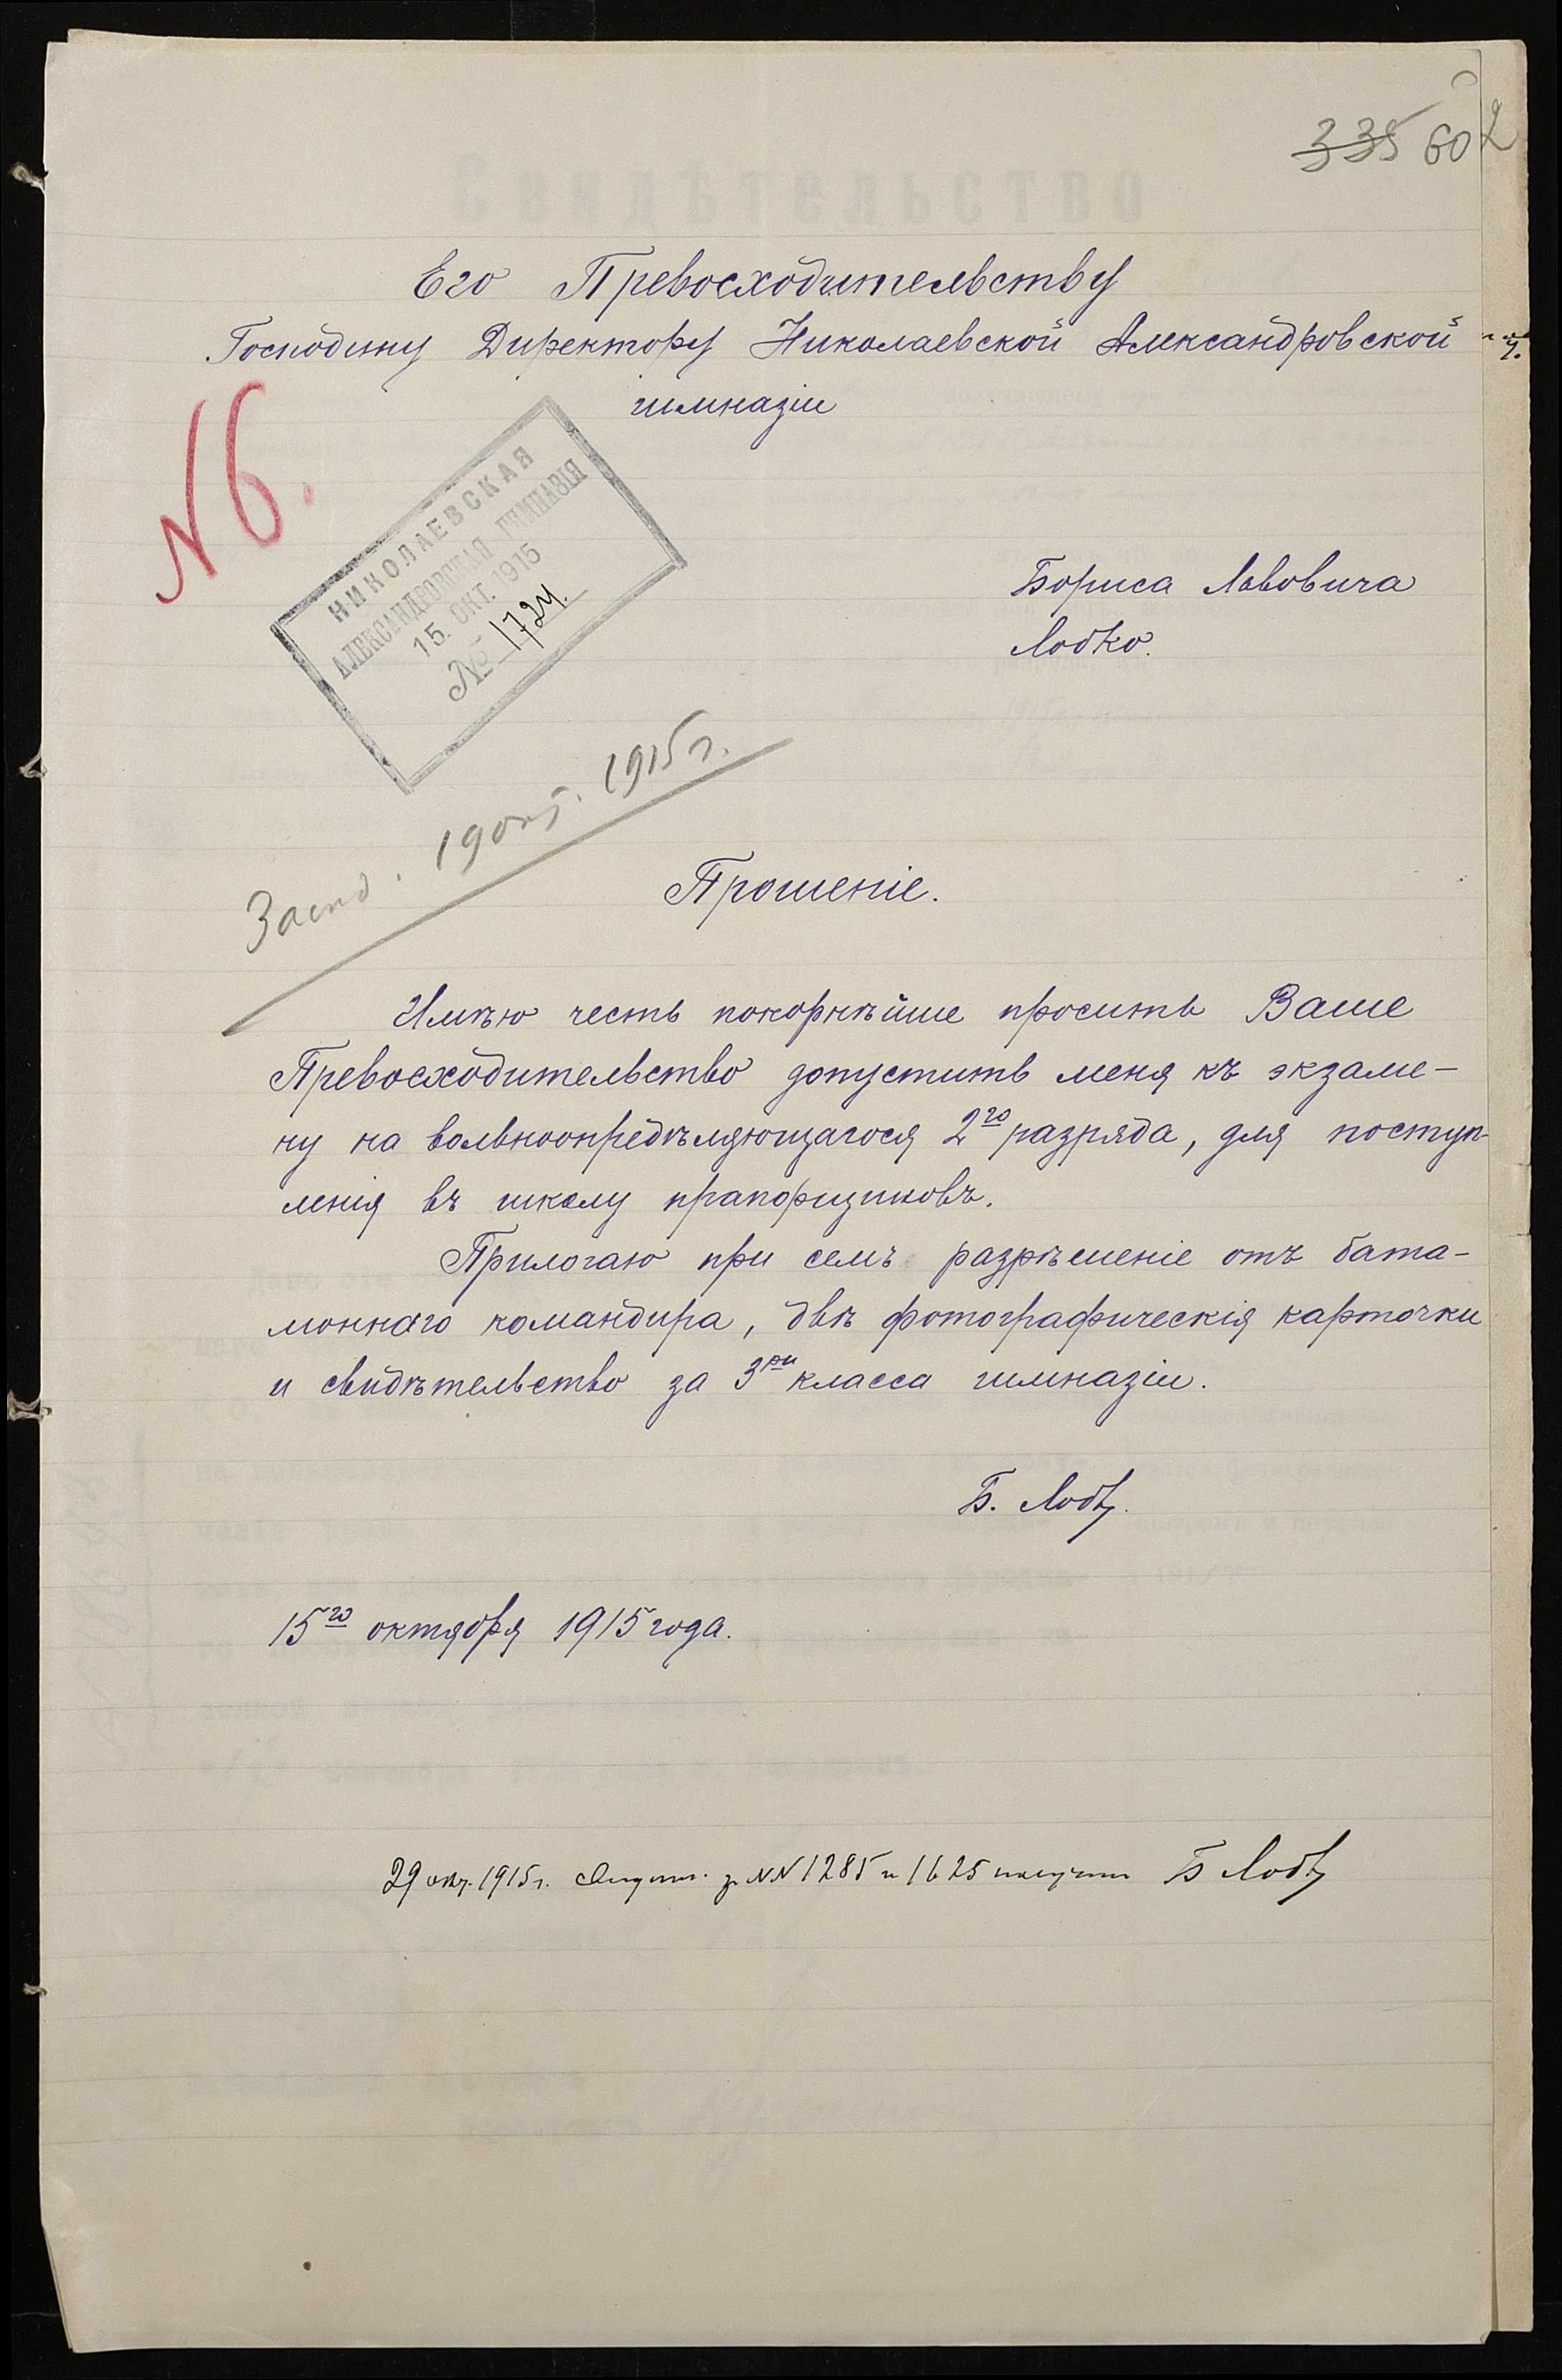 335 602
Свидѣтельство
Его Превосходительству
Господину Директору Николаевской Александровской
гимназіи
N 6.
НИКОЛАЕВСКАЯ
АЛЕКСАНДРОВСКАЯ ГИМНАЗІЯ
15. ОКТ. 1915
№ 1724.
Бориса Львовича
Лобко.
19 окт. 1915 г.
Прошеніе.
Имѣю честь покорнѣйше просить Ваше
Превосходительство допустить меня къ экзаме-
ну на вольноопредѣляющагося 2го разряда, для поступ-
ленія въ школу прапорщиковъ.
Прилогаю при семъ разрѣшеніе отъ бата-
лоннаго командира, двѣ фотографическія карточки
и свидѣтельство за 3ри класса гимназіи.
Б. Лобко.
15го октября 1915 года.
29 окт. 1915 г. за NN 1285 и 1625 получил Б Лобко